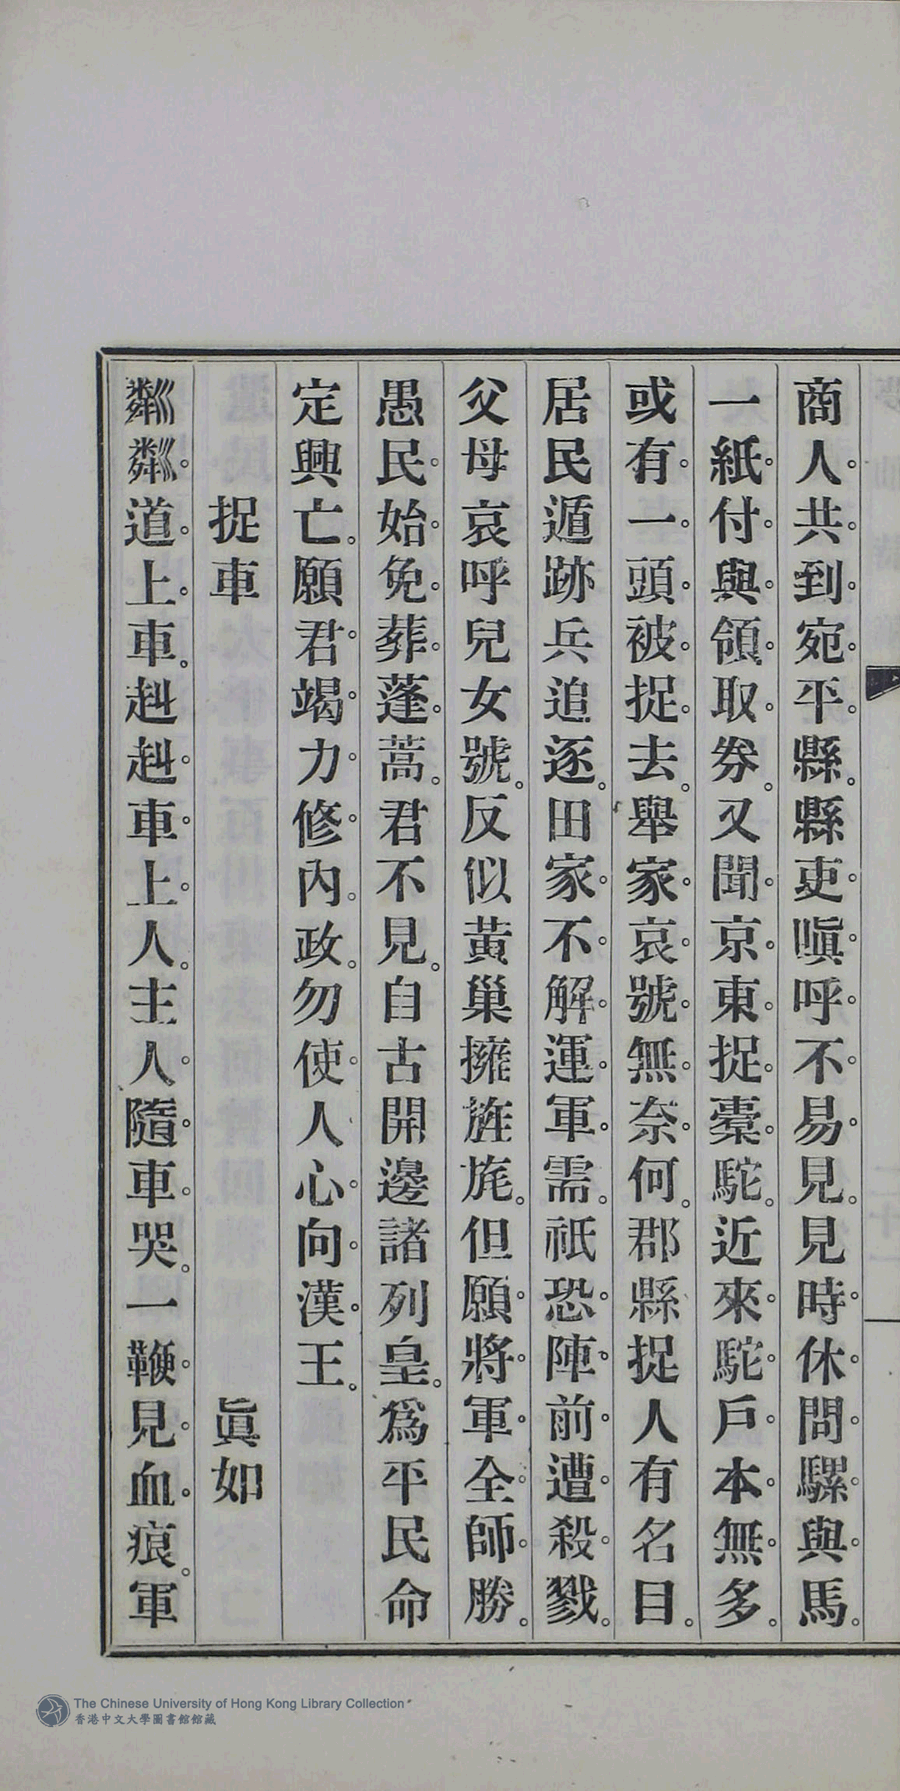 商人共到宛平縣縣吏嗔呼不易見見時休問騾與馬
一紙付與領取券又聞京東捉橐駝近來駝戶本無多
或有一頭被捉去舉家哀號無奈何郡縣捉人有名目
居民遁跡兵追逐田家不解運軍需祇恐陣前遭殺戮
父母哀呼兒女號反似黃巢擁旌旄但願將軍全師勝
愚民始免葬蓬蒿君不見自古開邊諸列皇爲平民命
定興亡願君竭力修內政勿使人心向漢王
捉車 眞如
粼粼道上車赳赳車上人主人隨車哭一鞭見血痕軍
The Chinese University of Hong Kong Library Collection
香港中文大學圖書館館藏